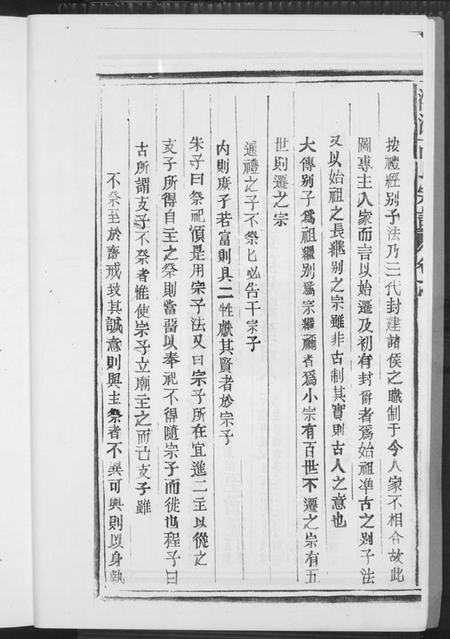 按禮經别子法乃三代封建諸侯之職制于今人家不相合故此
圖專主人家而言以始遷及初有封爵者爲始祖準古之别子法
又以始祖之長繼别之宗雖非古制其實則古人之意也
大傳别子爲祖繼别爲宗繼禰者爲小宗有百世不遷之宗有五
世則遷之宗
通禮之子不祭匕必告于宗子
内則庶子若富則具二牲獻其賢者於宗子
朱子曰祭祀須是用宗子法又曰宗子所在宜進二主以從之
支子所得自主之祭則當畱以奉祀不得隨宗子而徙也程子曰
古所謂支子不祭者惟使宗子立廟主之而已支子雖
不祭至於齋戒致其誠意則與主祭者不異可與則以身執